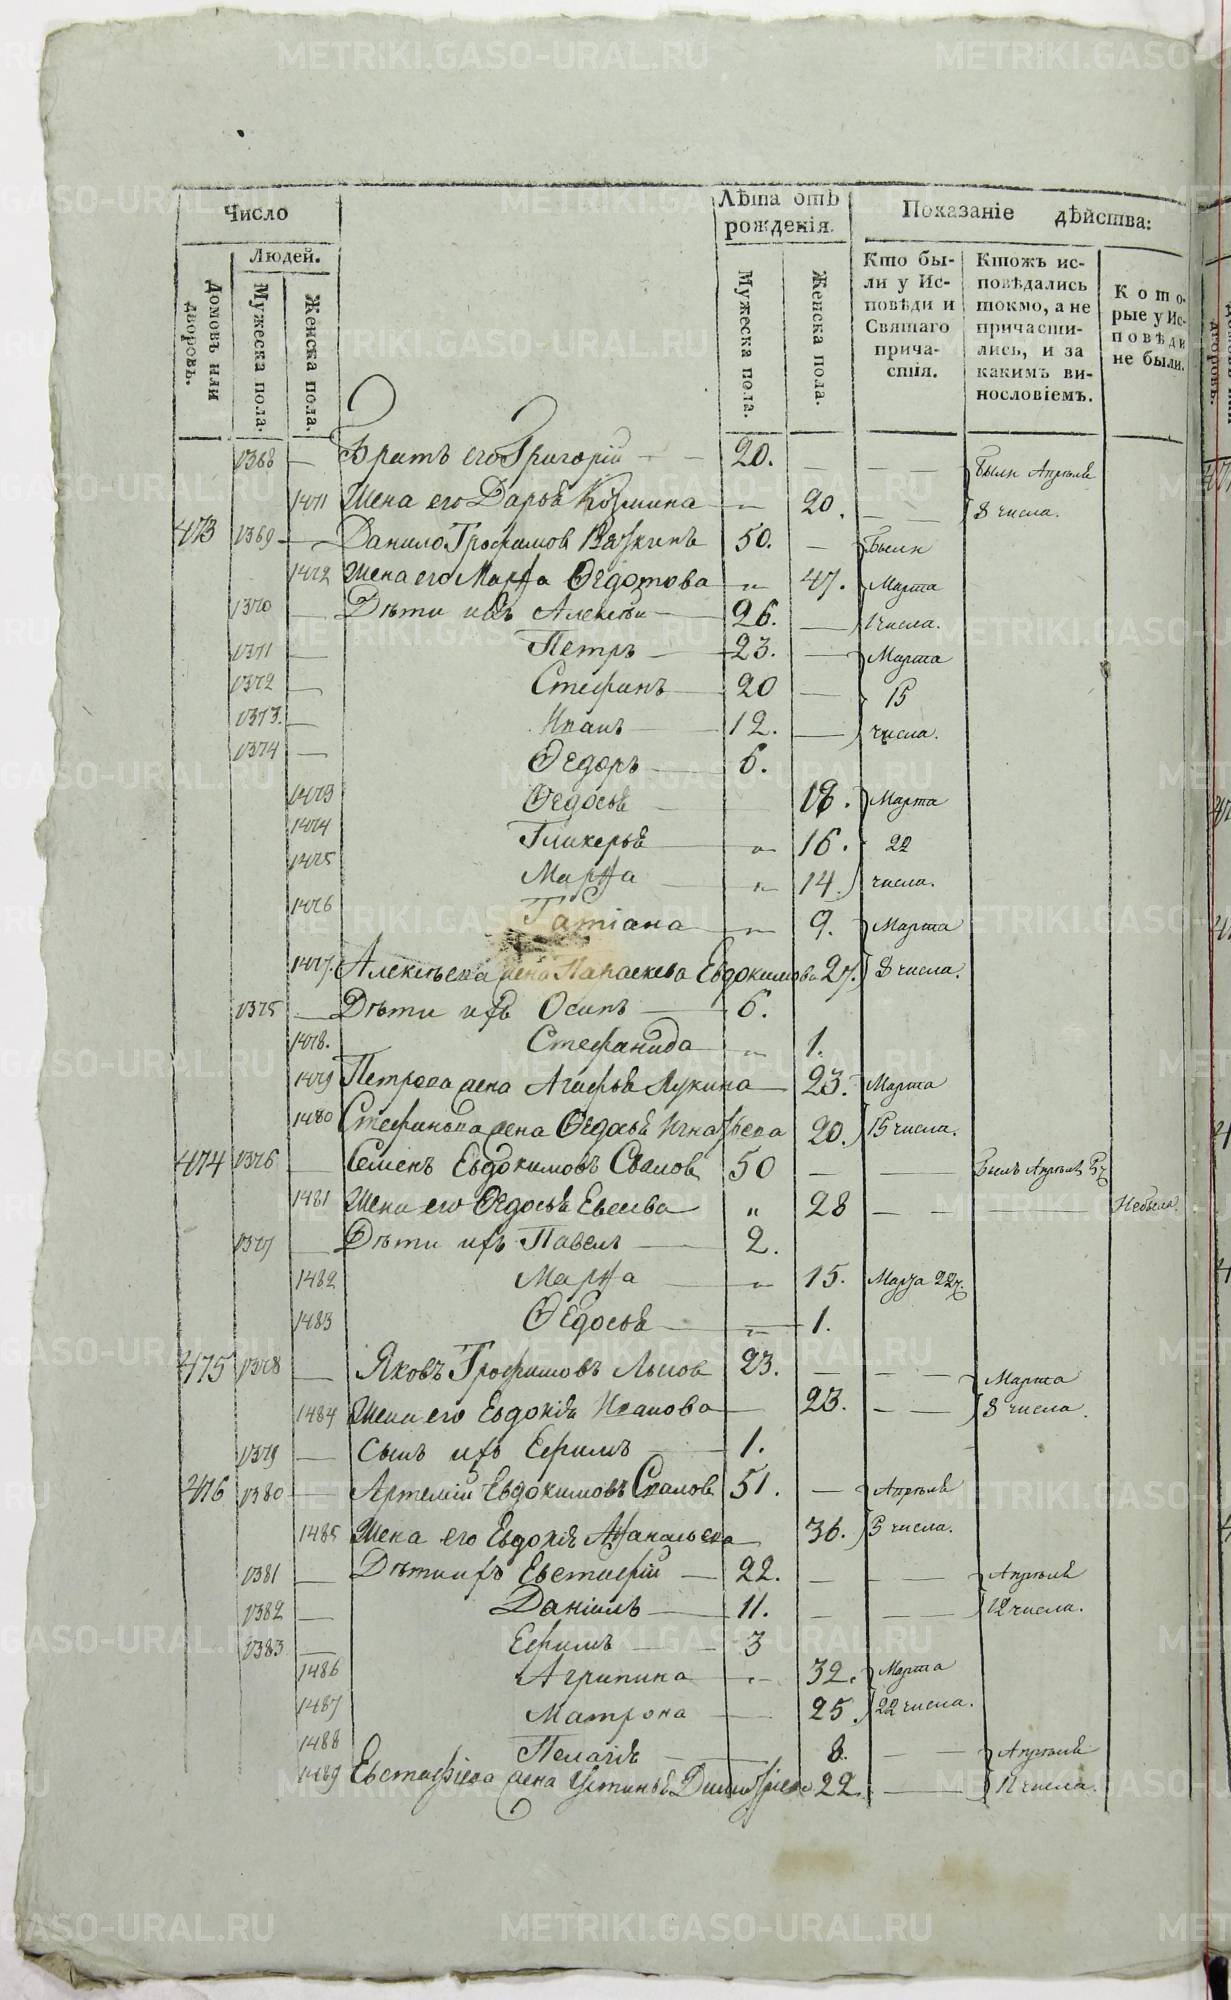 Число
Людей.
Домовъ или дворовъ.
Мужеска пола.
Женска пола.
Лѣта отъ рожденія.
Мужеска пола.
Женска пола.
Показаніе дѣйства:
Кто были у Исповѣди и Святаго причастія.
Ктожъ исповѣдались токмо, а не причастились, и за какимъ винословіемъ.
Которые у Исповѣди не были.
1368 — Братъ его Григорій — 20. — — — Были Апрѣля
1471 Жена его Дарья Козмина — 20. — — 8 числа.
473 1369 — Данило Трофимов 50. — Были
1472 Жена его Марѳа Ѳедотова „ 47. Марта
1370 — Дѣти ихъ Алексѣй — 26. — 1 числа.
1371 — Петръ — 23. — Марта
1372 — Стефанъ — 20 — 15
1373. — Иванъ — 12. — числа.
1374 — Ѳедоръ — 6.
1473 Ѳедосья — 18. Марта
1474 Гликерья — „ 16. 22
1475 Марѳа — „ 14. числа.
1476 Татіана — „ 9. Марта
1477. Алексѣева жена Параскева Евдокимова 27. 8 числа.
1375 — Дѣти ихъ Осипъ — 6.
1478. Стефанида „ 1.
1479 Петрова жена Агафья Лукина — 23. Марта
1480 Стефанова жена Ѳедосья Игнатьева 20. 15 числа.
474 1376 — Семенъ Евдокимовъ 50 — — Былъ Апрѣля 5 ч
1481 Жена его Ѳедосья Евсеева „ 28 — — — Небыла.
1377 — Дѣти ихъ Павелъ — 2.
1482 Марѳа — „ 15. Марта 22 ч.
1483 Ѳедосья — „ 1.
475 1378 — Яковъ Трофимовъ 23. — — — Марта
1484 Жена его Евдокія Иванова — 23. — — 8 числа.
1379 — Сынъ ихъ Ефимъ — 1.
476 1380 — Артемій Евдокимовъ 51. — Апрѣля
1485 Жена его Евдокія Аѳанасьева 36. 5 числа.
1381 — Дѣти ихъ Евстафій — 22. — — — Апрѣля
1382 — Даніилъ — 11. — — — 12 числа.
1383 — Ефимъ — 3
1486 Агрипина „ 32. Марта
1487 Матрона — 25. 22 числа.
1488 Пелагія — 8. — — Апрѣля
1489 Евстафіева жена Устинья Димитріева 22. — 12 числа.